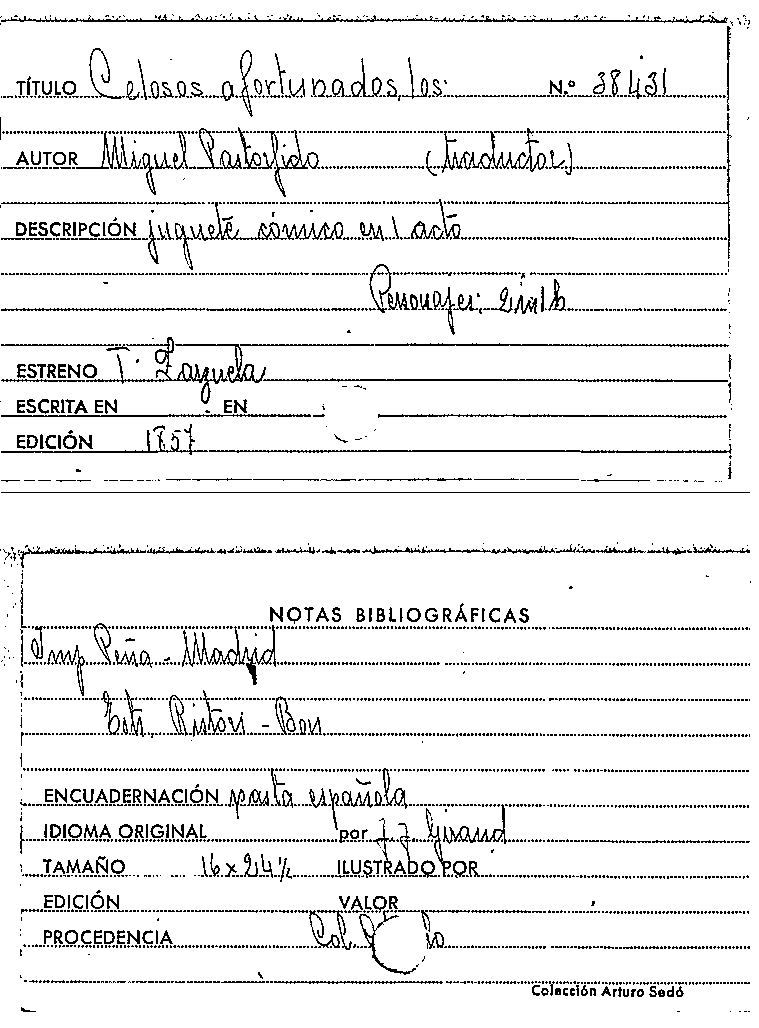 TÍTULO Celosos afortunados, los. N.º 38431
AUTOR Miguel Pastorfido (traductor)
DESCRIPCIÓN juguete cómico en 1 acto
Personajes:
ESTRENO T. Zarzuela
ESCRITA EN EN
EDICIÓN 1857
NOTAS BIBLIOGRÁFICAS
Imp Peña - Madrid
Estr. Ristori - Bon
ENCUADERNACIÓN pasta española
IDIOMA ORIGINAL por J. J. Giraud
TAMAÑO 16 x 24 ½ ILUSTRADO POR
EDICIÓN VALOR
PROCEDENCIA Col.
Colección Arturo Sedó